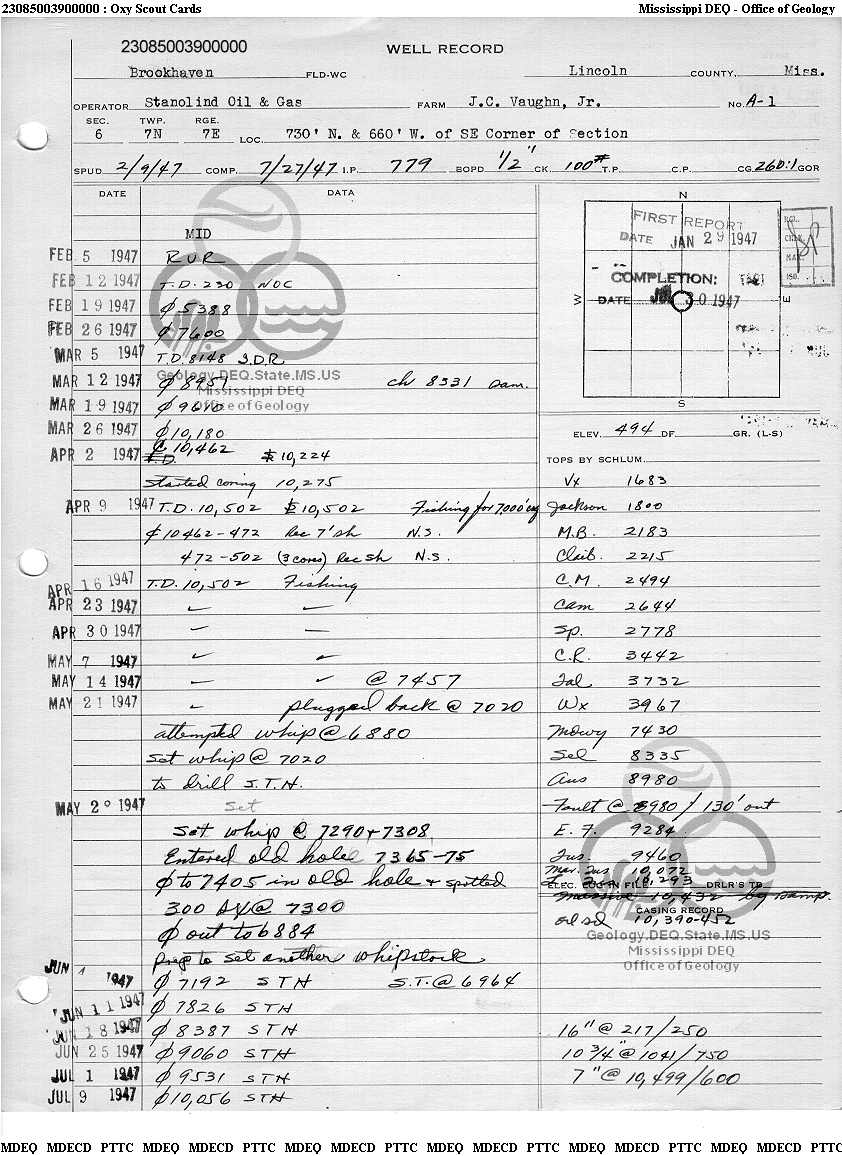 23085003900000 : Oxy Scout Cards Mississippi DEQ - Office of Geology
23085003900000
WELL RECORD
Brookhaven FLD-WC Lincoln COUNTY, Miss.
OPERATOR Stanolind Oil & Gas FARM J.C. Vaughn, Jr. No. A-1
SEC. TWP. RGE.
6 7N 7E LOC. 730' N. & 660' W. of SE Corner of Section
SPUD 2/9/47 COMP. 7/27/47 I.P. 779 BOPD 1/2" CK. 100# T.P. C.P. CG 260:1 GOR
DATE DATA
MID
FEB 5 1947 RUR
FEB 12 1947 T.D. 230 WOC
FEB 19 1947 ∅ 5388
FEB 26 1947 ∅ 7600
MAR 5 1947 T.D. 8148 S.D.R
MAR 12 1947 ∅ 8951 ch 8331 sam.
MAR 19 1947 ∅ 9610
MAR 26 1947 ∅ 10,180
APR 2 1947 C 10,462 10,224
Started coring 10,275
APR 9 1947 T.D. 10,502 10,502 Fishing for 7,000' csg
10462-472 Rec 7' sh N.S.
472-502 (3 cores) Rec sh N.S.
APR 16 1947 T.D. 10,502 Fishing
APR 23 1947
APR 30 1947
MAY 7 1947
MAY 14 1947 @ 7457
MAY 21 1947 plugged back @ 7020
attempted whip @ 6880
set whip @ 7020
to drill S.T.H.
MAY 2° 1947 Set
Set whip @ 7290 + 7308
Entered old hole 7365-75
∅ to 7405 in old hole + spotted
300 SX @ 7300
∅ out to 6884
prep to set another whipstock
JUN 4 1947 ∅ 7192 STH S.T. @ 6964
JUN 11 1947 ∅ 7826 STH
JUN 18 1947 ∅ 8387 STH
JUN 25 1947 ∅ 9060 STH
JUL 1 1947 ∅ 9531 STH
JUL 9 1947 ∅ 10,056 STH
N
W
E
S
FIRST REPORT
DATE JAN 29 1947
COMPLETION:
DATE JUL 30 1947
ELEV. 494 DF. GR. (L-S)
TOPS BY SCHLUM.
Vx 1683
Jackson 1800
M.B. 2183
Claib. 2215
C.M. 2494
Cam 2644
Sp. 2778
C.R. 3442
Tal 3732
Wx 3967
Mdwy 7430
Sel 8335
Aus 8980
Fault @ 8980 / 130' out
E.F. 9284
Tus. 9460
Mar. Tus 10,072
10,293
ELEC. LOG IN FILE DRLR'S TD
Massive 10,432 by samp.
CASING RECORD
oil sd 10,390-452
16" @ 217/250
10 3/4" @ 1041/750
7" @ 10,499/600
Geology.DEQ.State.MS.US
Mississippi DEQ
Office of Geology
Geology.DEQ.State.MS.US
Mississippi DEQ
Office of Geology
MDEQ MDECD PTTC MDEQ MDECD PTTC MDEQ MDECD PTTC MDEQ MDECD PTTC MDEQ MDECD PTTC MDEQ MDECD PTTC